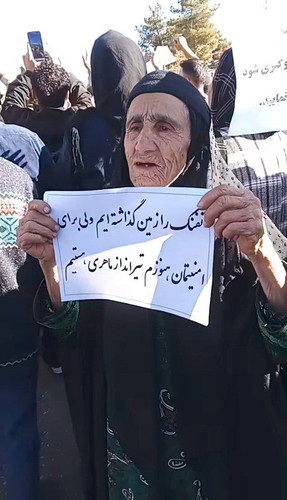 تفنگ را زمین گذاشته ایم ولی برای
امنیتمان هنوزم تیرانداز ماهری هستیم